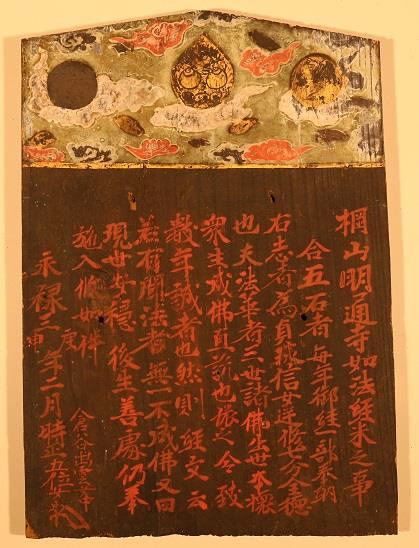 棡山明通寺如法経米之事
合五石者 毎年 経一部奉納
右志者為貞 信女逆修七分全徳
也夫法華者三世諸佛出世本懐
衆生成佛直 也 之今致
数年誠者也然則経文云
若有聞法者無一不成佛又曰
現世安穏後生善處仍奉
施入 如件
永禄三庚申年二月時正